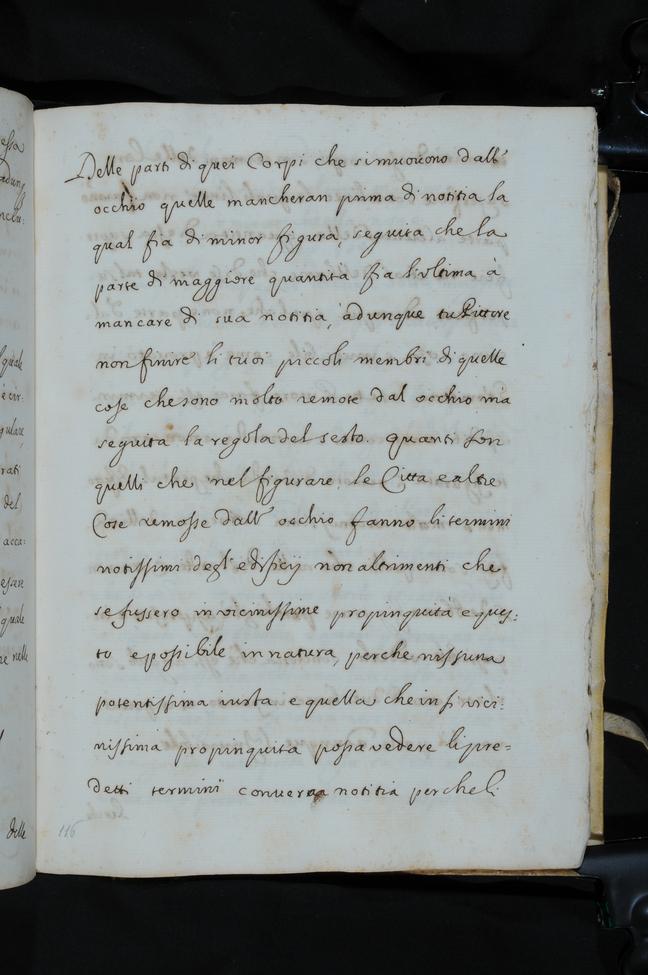 essa
adunq
nclu:
Delle parti di quei Corpi che simuouono dall'
occhio quelle mancheran prima di notitia la
qual fia di minor figura, seguita che la
parte di maggiore quantità fia l'ultima à
mancare di sua notitia, adunque tu Pittore
non finire li tuoi piccoli membri di quelle
cose che sono molto remote dal occhio mà
seguita la regola del sesto. quanti son
quelli che nel figurare le Citta e altre
Cose remosse dall' occhio fanno li termini
notissimi degl' edificij non altrimenti che
se fussero in vicinissime propinquità e ques:
to e possibile in natura, perche nissuna
potentissima iusta e quella che in si vici:
nissima propinquita possa vedere li pre=
detti terminii con vera notitia perche li
quale
è cir.
gulare,
rati
del
acca:
esare
quale
re nelle
delle
116